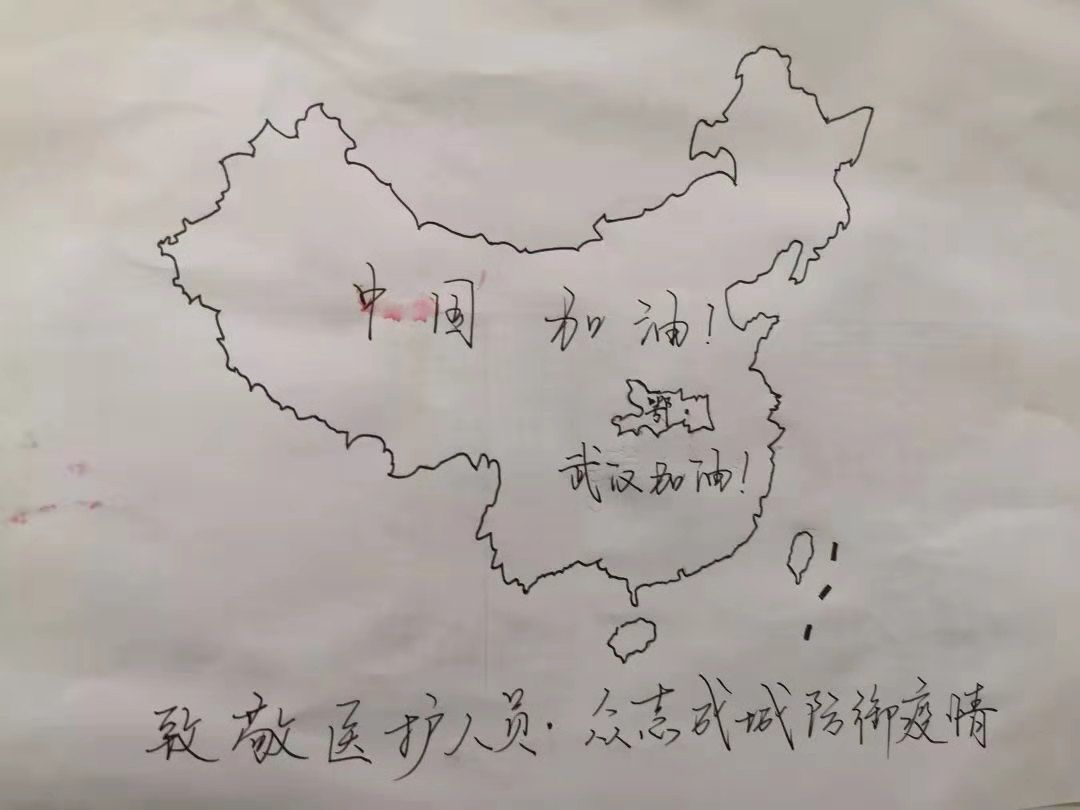 中国 加油！
鄂
武汉加油！
致敬医护人员·众志成城防御疫情